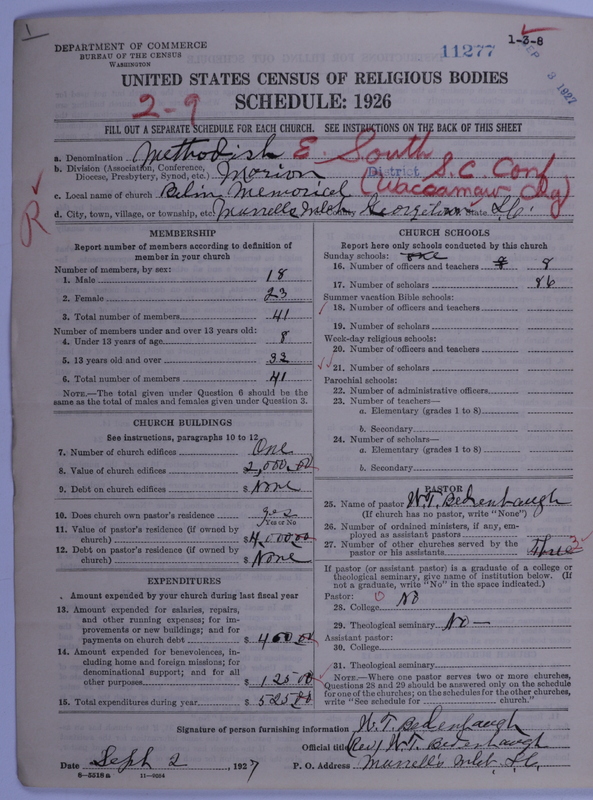 1
DEPARTMENT OF COMMERCE
BUREAU OF THE CENSUS
WASHINGTON
11277
1-3-8
SEP 3 1927
UNITED STATES CENSUS OF RELIGIOUS BODIES
SCHEDULE: 1926
2-9
FILL OUT A SEPARATE SCHEDULE FOR EACH CHURCH. SEE INSTRUCTIONS ON THE BACK OF THIS SHEET
a. Denomination Methodish E. South
b. Division (Association, Conference, Diocese, Presbytery, Synod, etc.) Marion District S.C. Conf
c. Local name of church Belin Memorial (Waccamaw Chg)
d. City, town, village, or township, etc. Murrells Inlet County Georgetown State S.C.
R
MEMBERSHIP
Report number of members according to definition of
member in your church
Number of members, by sex:
1. Male 18
2. Female 23
3. Total number of members 41
Number of members under and over 13 years old:
4. Under 13 years of age 8
5. 13 years old and over 33
6. Total number of members 41
NOTE.—The total given under Question 6 should be the
same as the total of males and females given under Question 3.
CHURCH BUILDINGS
See instructions, paragraphs 10 to 12
7. Number of church edifices One
8. Value of church edifices $2,000.00
9. Debt on church edifices $ None
10. Does church own pastor's residence? yes
Yes or No
11. Value of pastor's residence (if owned by
church) $4,000.00
12. Debt on pastor's residence (if owned by
church) $ None
EXPENDITURES
Amount expended by your church during last fiscal year
13. Amount expended for salaries, repairs,
and other running expenses; for im-
provements or new buildings; and for
payments on church debt $ 400.00
14. Amount expended for benevolences, in-
cluding home and foreign missions; for
denominational support; and for all
other purposes $ 125.00
15. Total expenditures during year $ 525.00
CHURCH SCHOOLS
Report here only schools conducted by this church
Sunday schools: one
16. Number of officers and teachers 8 8
17. Number of scholars 86
Summer vacation Bible schools:
18. Number of officers and teachers
19. Number of scholars
Week-day religious schools:
20. Number of officers and teachers
21. Number of scholars
Parochial schools:
22. Number of administrative officers
23. Number of teachers—
a. Elementary (grades 1 to 8)
b. Secondary
24. Number of scholars—
a. Elementary (grades 1 to 8)
b. Secondary
PASTOR
25. Name of pastor W.T. Bedenbaugh
(If church has no pastor, write "None")
26. Number of ordained ministers, if any, em-
ployed as assistant pastors
27. Number of other churches served by the
pastor or his assistants Three 3
If pastor (or assistant pastor) is a graduate of a college or
theological seminary, give name of institution below. (If
not a graduate, write "No" in the space indicated.)
Pastor: 0
28. College No
29. Theological seminary No —
Assistant pastor:
30. College
31. Theological seminary
NOTE.—Where one pastor serves two or more churches,
Questions 28 and 29 should be answered only on the schedule
for one of the churches; on the schedules for the other churches,
write "See schedule for church."
Signature of person furnishing information W.T. Bedenbaugh
Official title (Rev) W.T. Bedenbaugh
Date Seph 2, 1927 P. O. Address Murrells Inlet, S.C.
6-5318a 11-9034